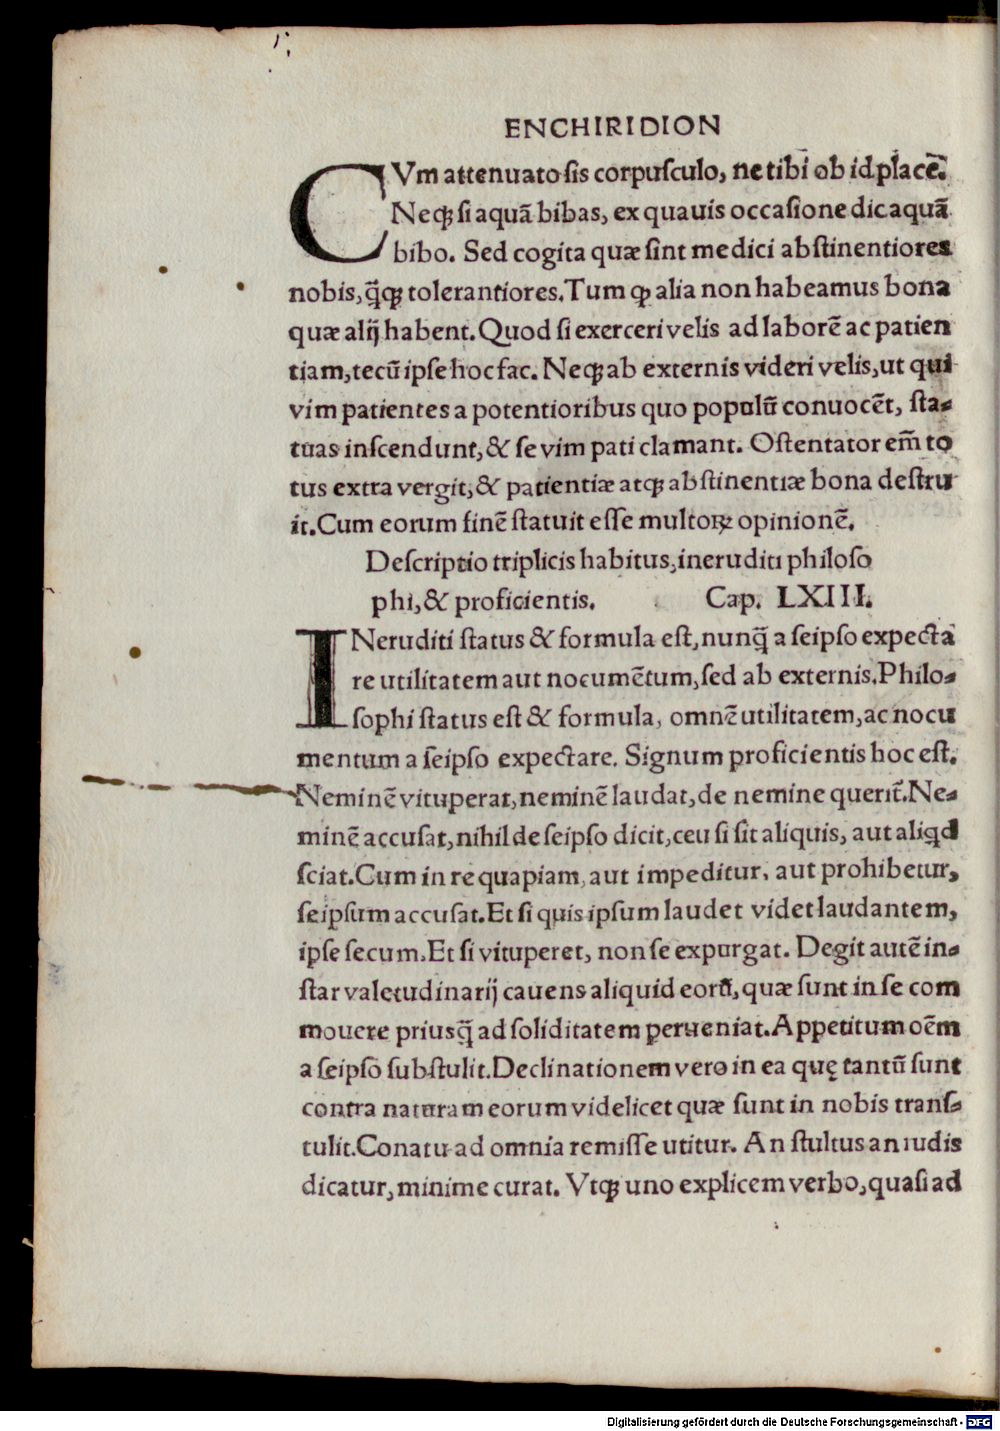 ENCHIRIDION
CVm attenuato sis corpusculo, ne tibi ob id placē.
Neqꝫ si aquā bibas, ex quauis occasione dic aquā
bibo. Sed cogita quæ sint medici abstinentiores
nobis, q̄qꝫ tolerantiores. Tum ꝙ alia non habeamus bona
quæ alij habent. Quod si exerceri velis ad laborē ac patien
tiam, tecū ipse hoc fac. Neqꝫ ab externis videri velis, ut qui
vim patientes a potentioribus quo populū conuocēt, sta-
tuas inscendunt, & se vim pati clamant. Ostentator em̄ to
tus extra vergit, & patientiæ atqꝫ abstinentiæ bona destru
it. Cum eorum finē statuit esse multoꝝ opinionē.
Descriptio triplicis habitus, ineruditi philoso
phi, & proficientis. Cap. LXIII.
INeruditi status & formula est, nunq̄ a seipso expecta
re utilitatem aut nocumētum, sed ab externis. Philo-
sophi status est & formula, omnē utilitatem, ac nocu
mentum a seipso expectare. Signum proficientis hoc est.
Neminē vituperat, neminē laudat, de nemine querit̄. Ne-
minē accusat, nihil de seipso dicit, ceu si sit aliquis, aut aliqd
sciat. Cum in re quapiam, aut impeditur, aut prohibetur,
seipsum accusat. Et si quis ipsum laudet videt laudantem,
ipse secum. Et si vituperet, non se expurgat. Degit autē in-
star valetudinarij cauens aliquid eorū, quæ sunt in se com
mouere priusq̄ ad soliditatem perueniat. Appetitum oēm
a seipso substulit. Declinationem vero in ea quę tantū sunt
contra naturam eorum videlicet quæ sunt in nobis trans-
tulit. Conatu ad omnia remisse utitur. An stultus an rudis
dicatur, minime curat. Vtqꝫ uno explicem verbo, quasi ad
Digitalisierung gefördert durch die Deutsche Forschungsgemeinschaft - DFG